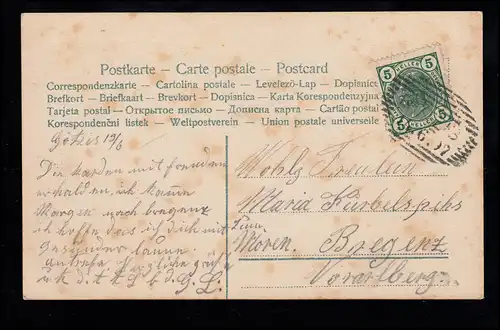 Postkarte — Carte postale — Postcard
Correspondenzkarte — Cartolina postale — Levelező-Lap — Dopisnice
Brefkort — Briefkaart — Brevkort — Dopisnica — Karta Korespondenzyjna
Tarjeta postal — Открытое письмо — Дописна карта — Cartão postal
Korespondenční listek — Weltpostverein — Union postale universelle
5 HELLER 5
5 HELLER 5
Götzis 19/6
Die Karden mit freuden
erhalden, ich kome
Morgen nach bregenz
ich hoffe das ich dich mit
Gesunder
Herzliche
Wohlg Freulein
Maria
Bregenz
Vorarlberg